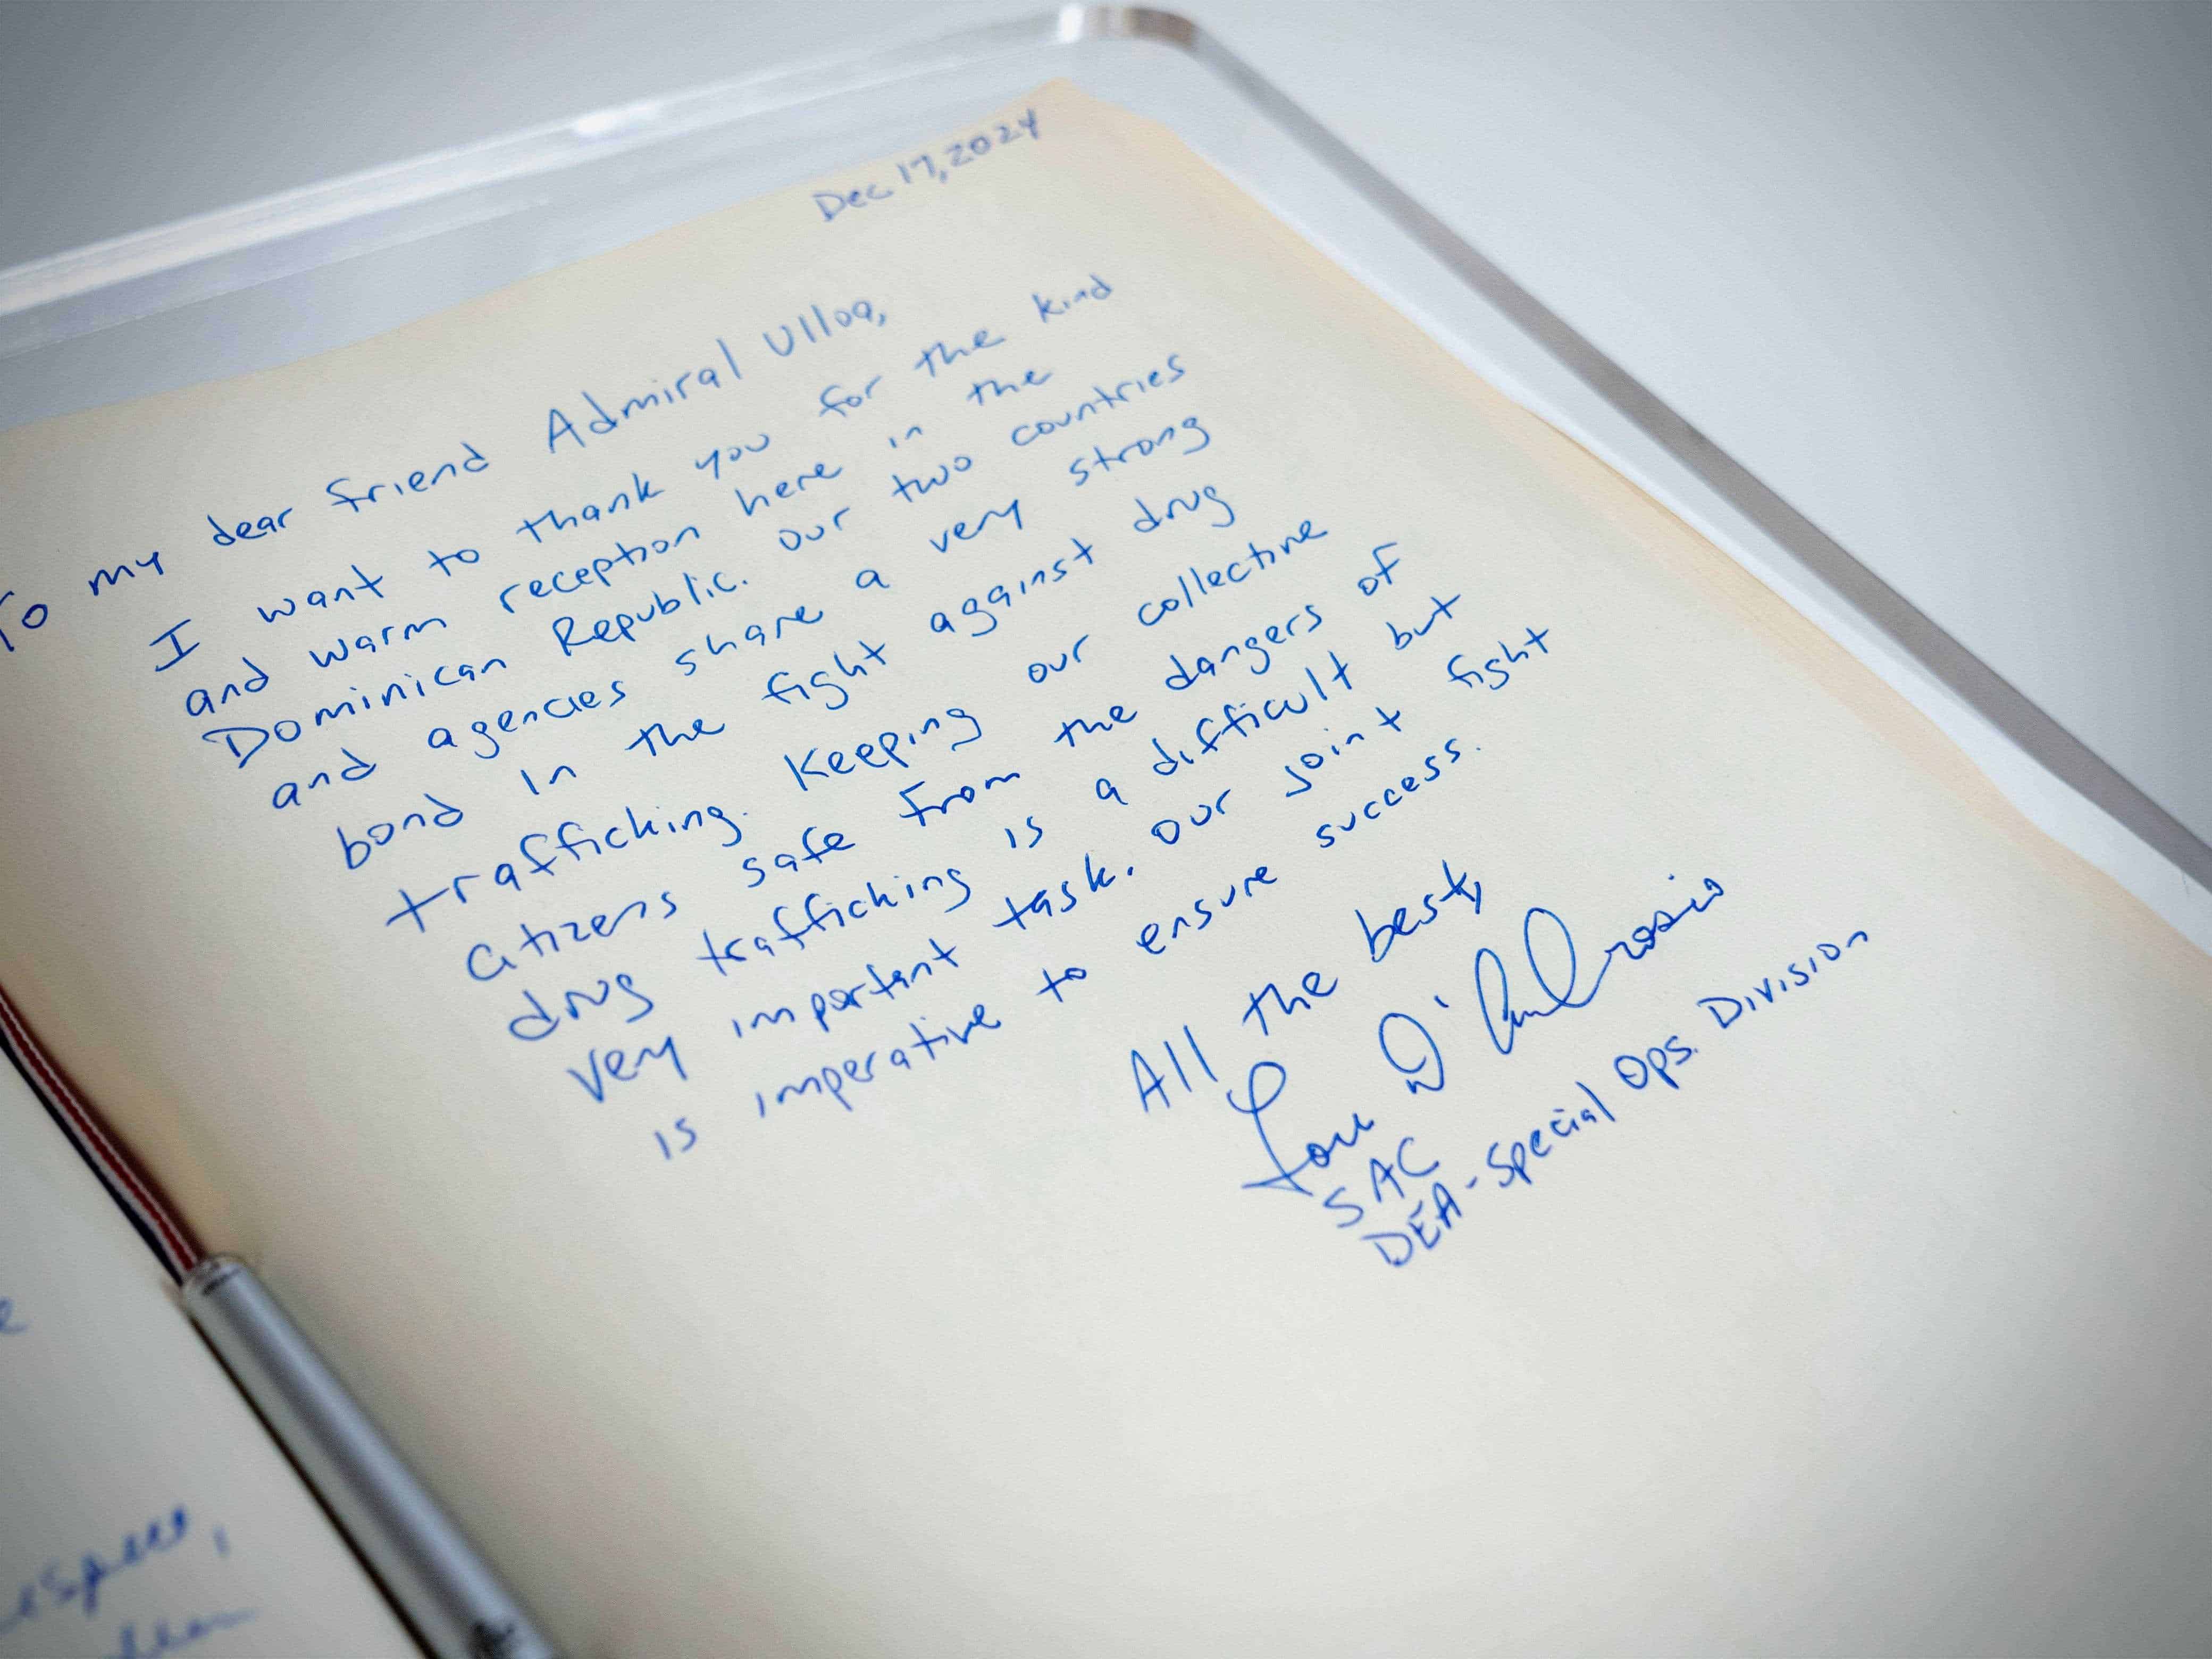 Dec 17, 2024
To my dear friend Admiral Ulloa,
I want to thank you for the kind
and warm reception here in the
Dominican Republic. Our two countries
and agencies share a very strong
bond in the fight against drug
trafficking. Keeping our collective
citizens safe from the dangers of
drug trafficking is a difficult but
very important task. Our joint fight
is imperative to ensure success.
All the best,
Lou D'Ambrosio
SAC
DEA-Special Ops. Division